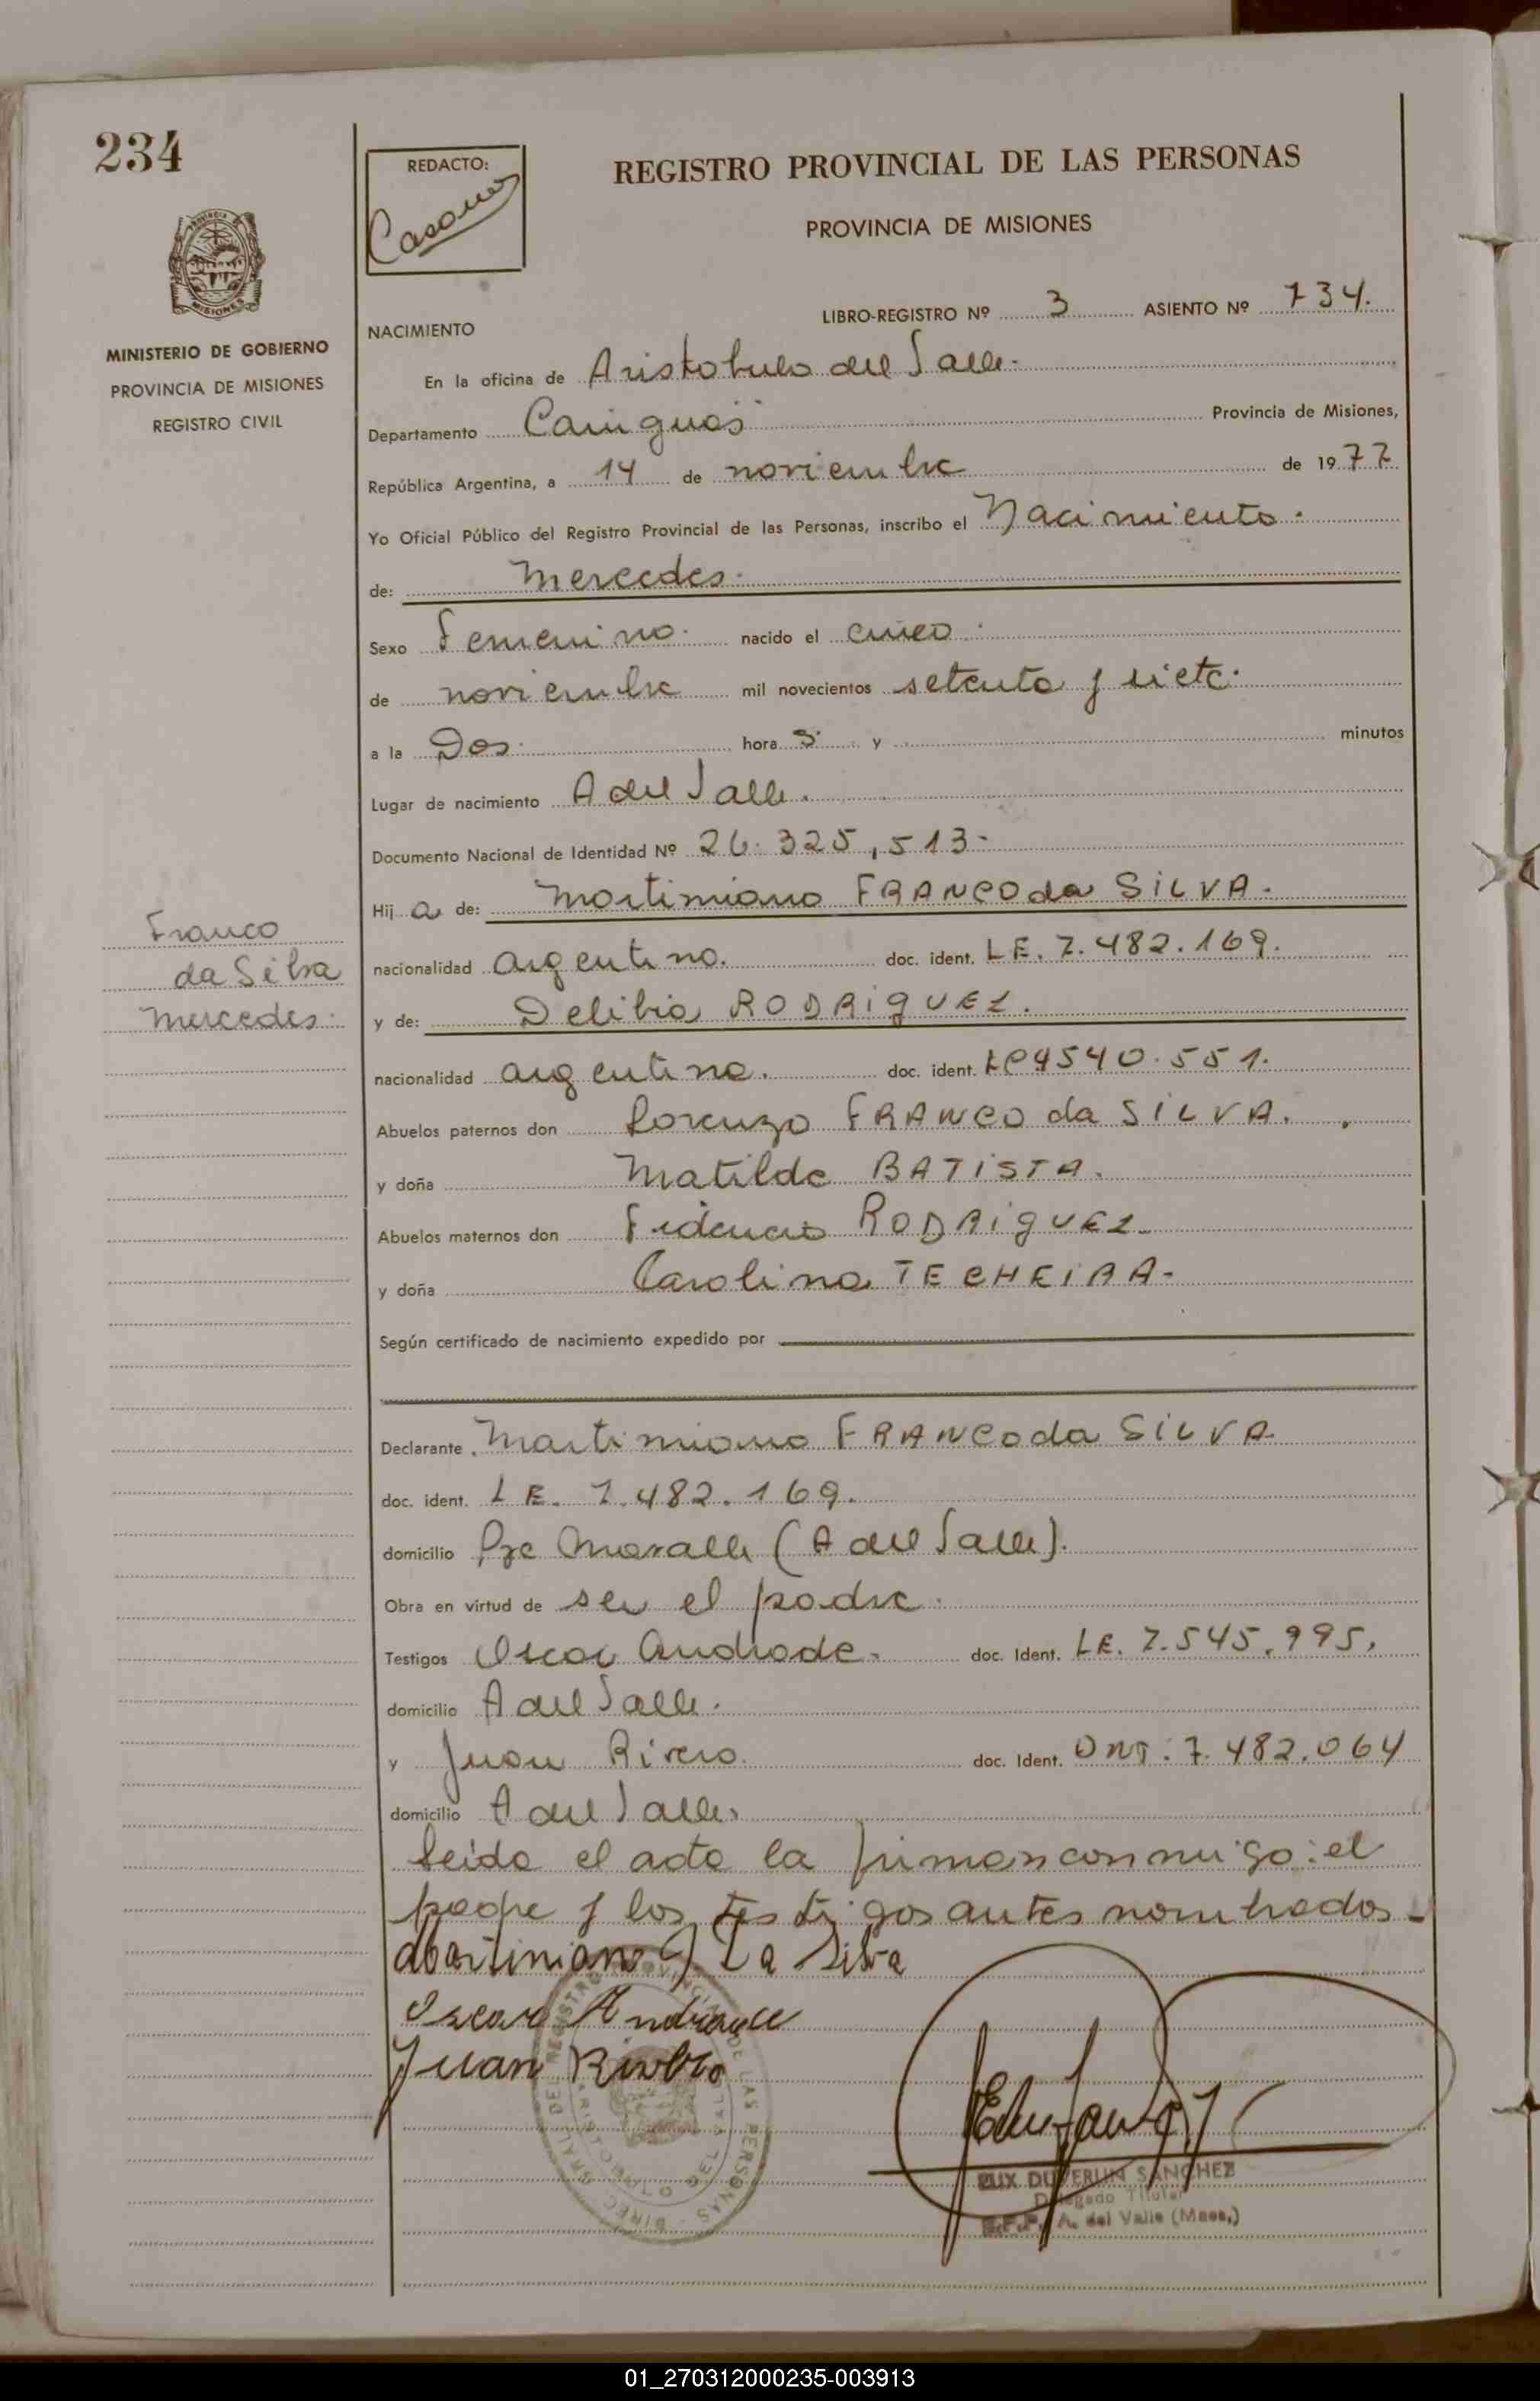 234
REDACTO:
REGISTRO PROVINCIAL DE LAS PERSONAS
PROVINCIA DE MISIONES
MISIONES
MINISTERIO DE GOBIERNO
PROVINCIA DE MISIONES
REGISTRO CIVIL
LIBRO-REGISTRO Nº 3 ASIENTO Nº 734.
NACIMIENTO
En la oficina de Aristobulo del Valle.
Departamento Cainguás Provincia de Misiones,
República Argentina, a 14 de noviembre de 1977
Yo Oficial Público del Registro Provincial de las Personas, inscribo el Nacimiento.
de: Mercedes.
Sexo Femenino. nacido el cinco.
de noviembre mil novecientos setenta y siete.
a la Dos. hora s. y minutos
Lugar de nacimiento A del Valle.
Documento Nacional de Identidad Nº 26.325,513-
Hij a de: Martimiano FRANCO da SILVA.
nacionalidad argentino. doc. ident. LE. 7.482.169.
y de: Delibia RODRIGUEZ.
nacionalidad argentina. doc. ident. LC 4540.551.
Abuelos paternos don Lorenzo FRANCO da SILVA.
y doña Matilde BATISTA.
Abuelos maternos don Fidencio RODRIGUEZ
y doña Carolina TECHEIRA-
Franco
da Silva
Mercedes.
Según certificado de nacimiento expedido por
Declarante Martimiano FRANCO da SILVA
doc. ident. LE. 7.482.169.
domicilio (A del Valle).
Obra en virtud de ser el padre.
Testigos Oscar Andrade. doc. Ident. LE. 7.545.995.
domicilio A del Valle.
y Juan Rivero. doc. Ident. DNI: 7.482.064
domicilio A del Valle.
Leida el acta la firman conmigo: el
padre y los testigos antes nombrados-
Martiniano F Da Silva
Oscar Andrade
Juan
DUVERLIN SANCHEZ
Delegado Titular
A. del Valle (Mnes.)
01_270312000235-003913